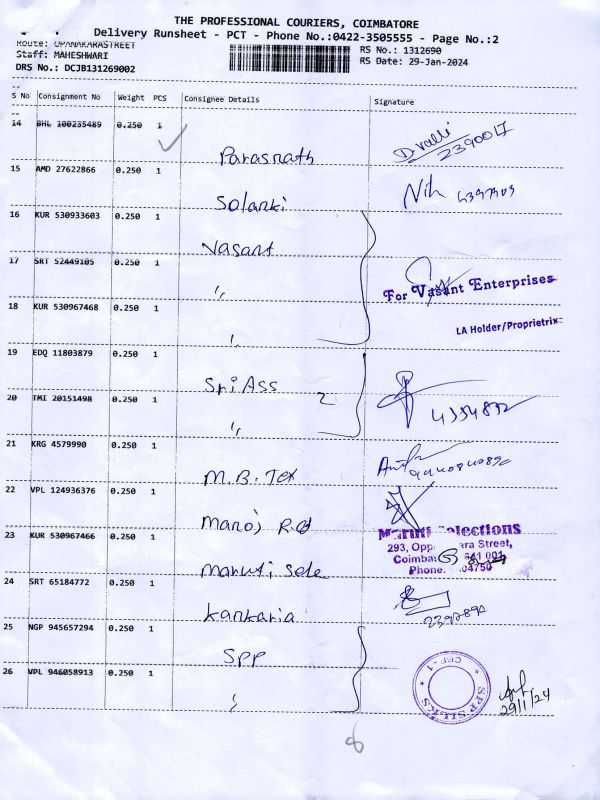 THE PROFESSIONAL COURIERS, COIMBATORE
Delivery Runsheet - PCT - Phone No.:0422-3505555 - Page No.:2
Route: OPANAKARASTREET
RS No.: 1312690
Staff: MAHESHWARI
RS Date: 29-Jan-2024
DRS No.: DCJB131269002
S No Consignment No Weight PCS Consignee Details Signature
14 BHL 100235489 0.250 1 Parasnath D. Valli 2390017
15 AMD 27622866 0.250 1 Solanki
16 KUR 530933603 0.250 1 Vasant
17 SRT 52449105 0.250 1 "
For Vasant Enterprises
18 KUR 530967468 0.250 1 "
LA Holder/Proprietrix
19 EDQ 11803879 0.250 1 Sri Ass 2
20 TMI 20151498 0.250 1 " 4354892
21 KRG 4579990 0.250 1 M.B. Tex
22 VPL 124936376 0.250 1 Manoj Rd
23 KUR 530967466 0.250 1 Maruti Sele
Maruti Selections
293, Opp. ara Street,
Coimba 641 001
Phone. 04750
24 SRT 65184772 0.250 1 Kankaria
25 NGP 945657294 0.250 1 SPP
26 VPL 946058913 0.250 1 "
SPP SILKS
29/1/24
8